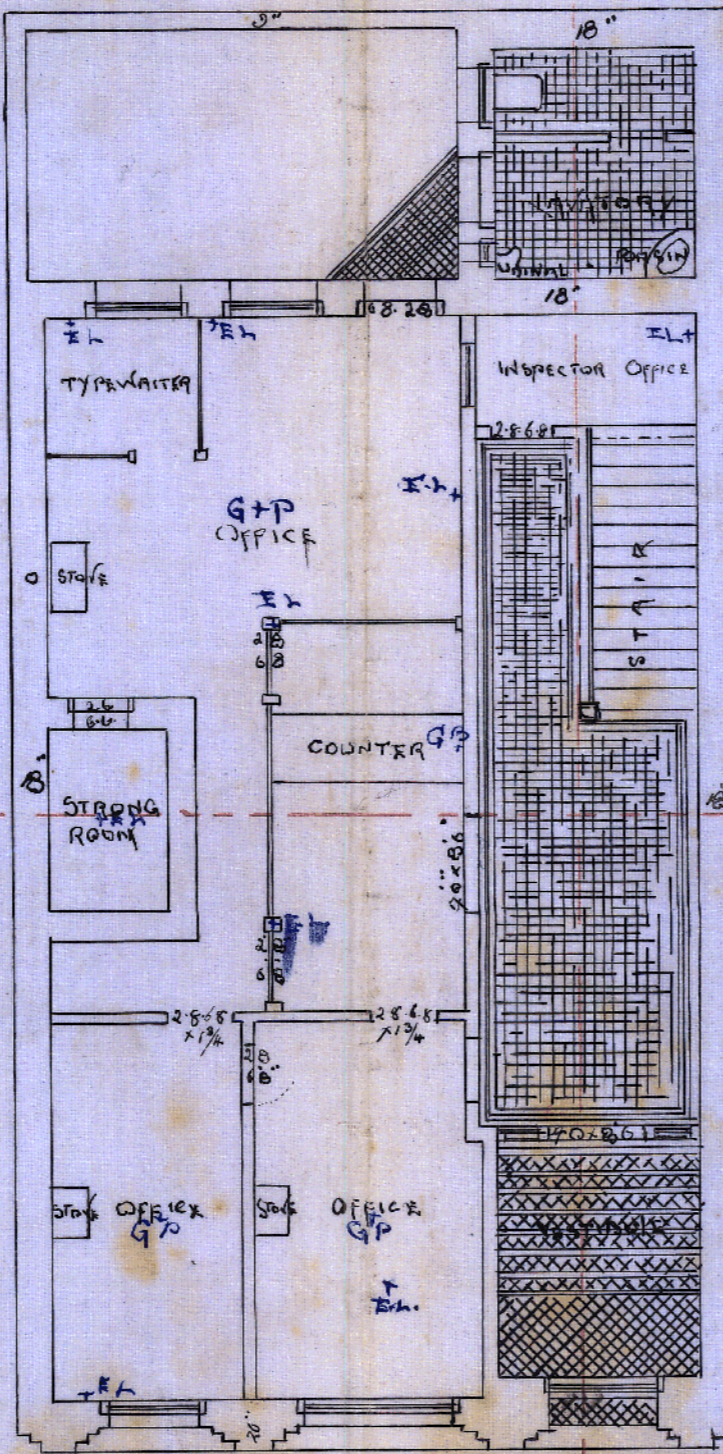 9"
18"
LAVATORY
URINAL
BASIN
18"
6 8 . 2 8
E L
E L
E L +
TYPEWRITER
INSPECTOR OFFICE
2.8.6.8
E.L +
G+P
OFFICE
STOVE
STAIR
E L
2 8
6 8
2 6
6.6
COUNTER
G P
18"
STRONG
ROOM
+ E L
18"
7'0" x 8'6"
E L
2' 8
6' 8
2.8.6.8
x 1 3/4
2.8.6.8
x 1 3/4
2' 8
6' 8"
4'0 x 8'6
STOVE
OFFICE
G P
STOVE
OFFICE
G P
VESTIBULE
+
E.L.
+ E L
20"